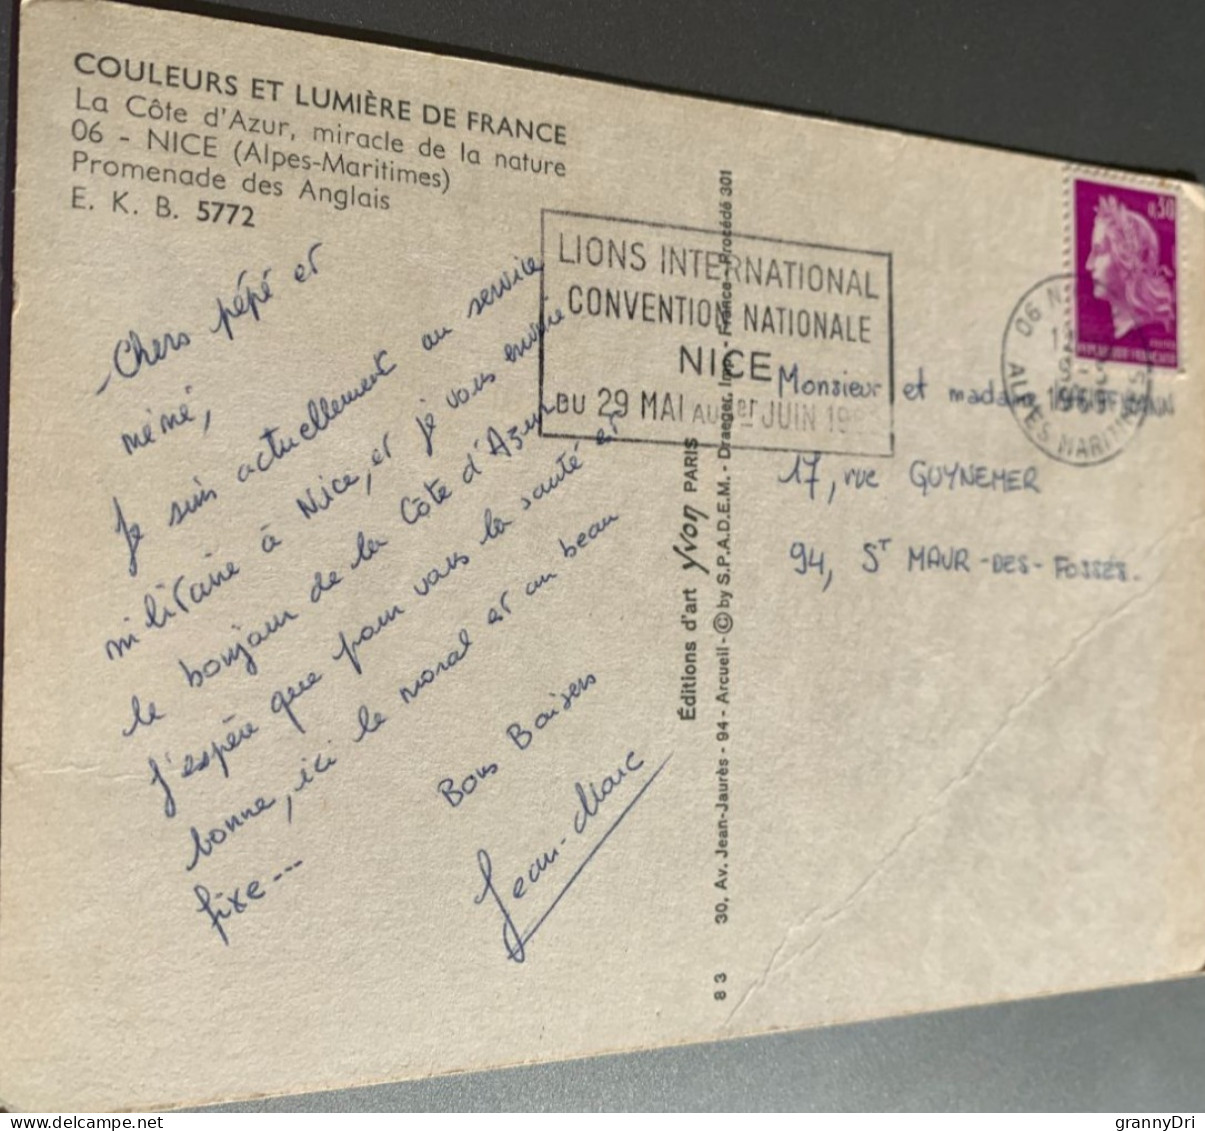 COULEURS ET LUMIÈRE DE FRANCE
La Côte d'Azur, miracle de la nature
06 - NICE (Alpes-Maritimes)
Promenade des Anglais
E. K. B. 5772
- Chers pépé et
mémé,
Je suis actuellement au service
militaire à Nice, et je vous envoie
le bonjour de la Côte d'Azur
J'espère que pour vous la santé est
bonne, ici le moral est au beau
fixe ---
Bons Baisers
Jean-Marc
Éditions d'art Yvon PARIS
30, Av. Jean-Jaurès - 94 - Arcueil - © by S.P.A.D.E.M. - Draeger, Imp. - France - Procédé 301
8 3
LIONS INTERNATIONAL
CONVENTION NATIONALE
NICE
DU 29 MAI AU 1er JUIN
0,30
REPUBLIQUE FRANÇAISE
06
ALPES MARITIMES
1969
Monsieur et madame
17, rue GUYNEMER
94, ST MAUR-DES-FOSSÉS.
grannyDri